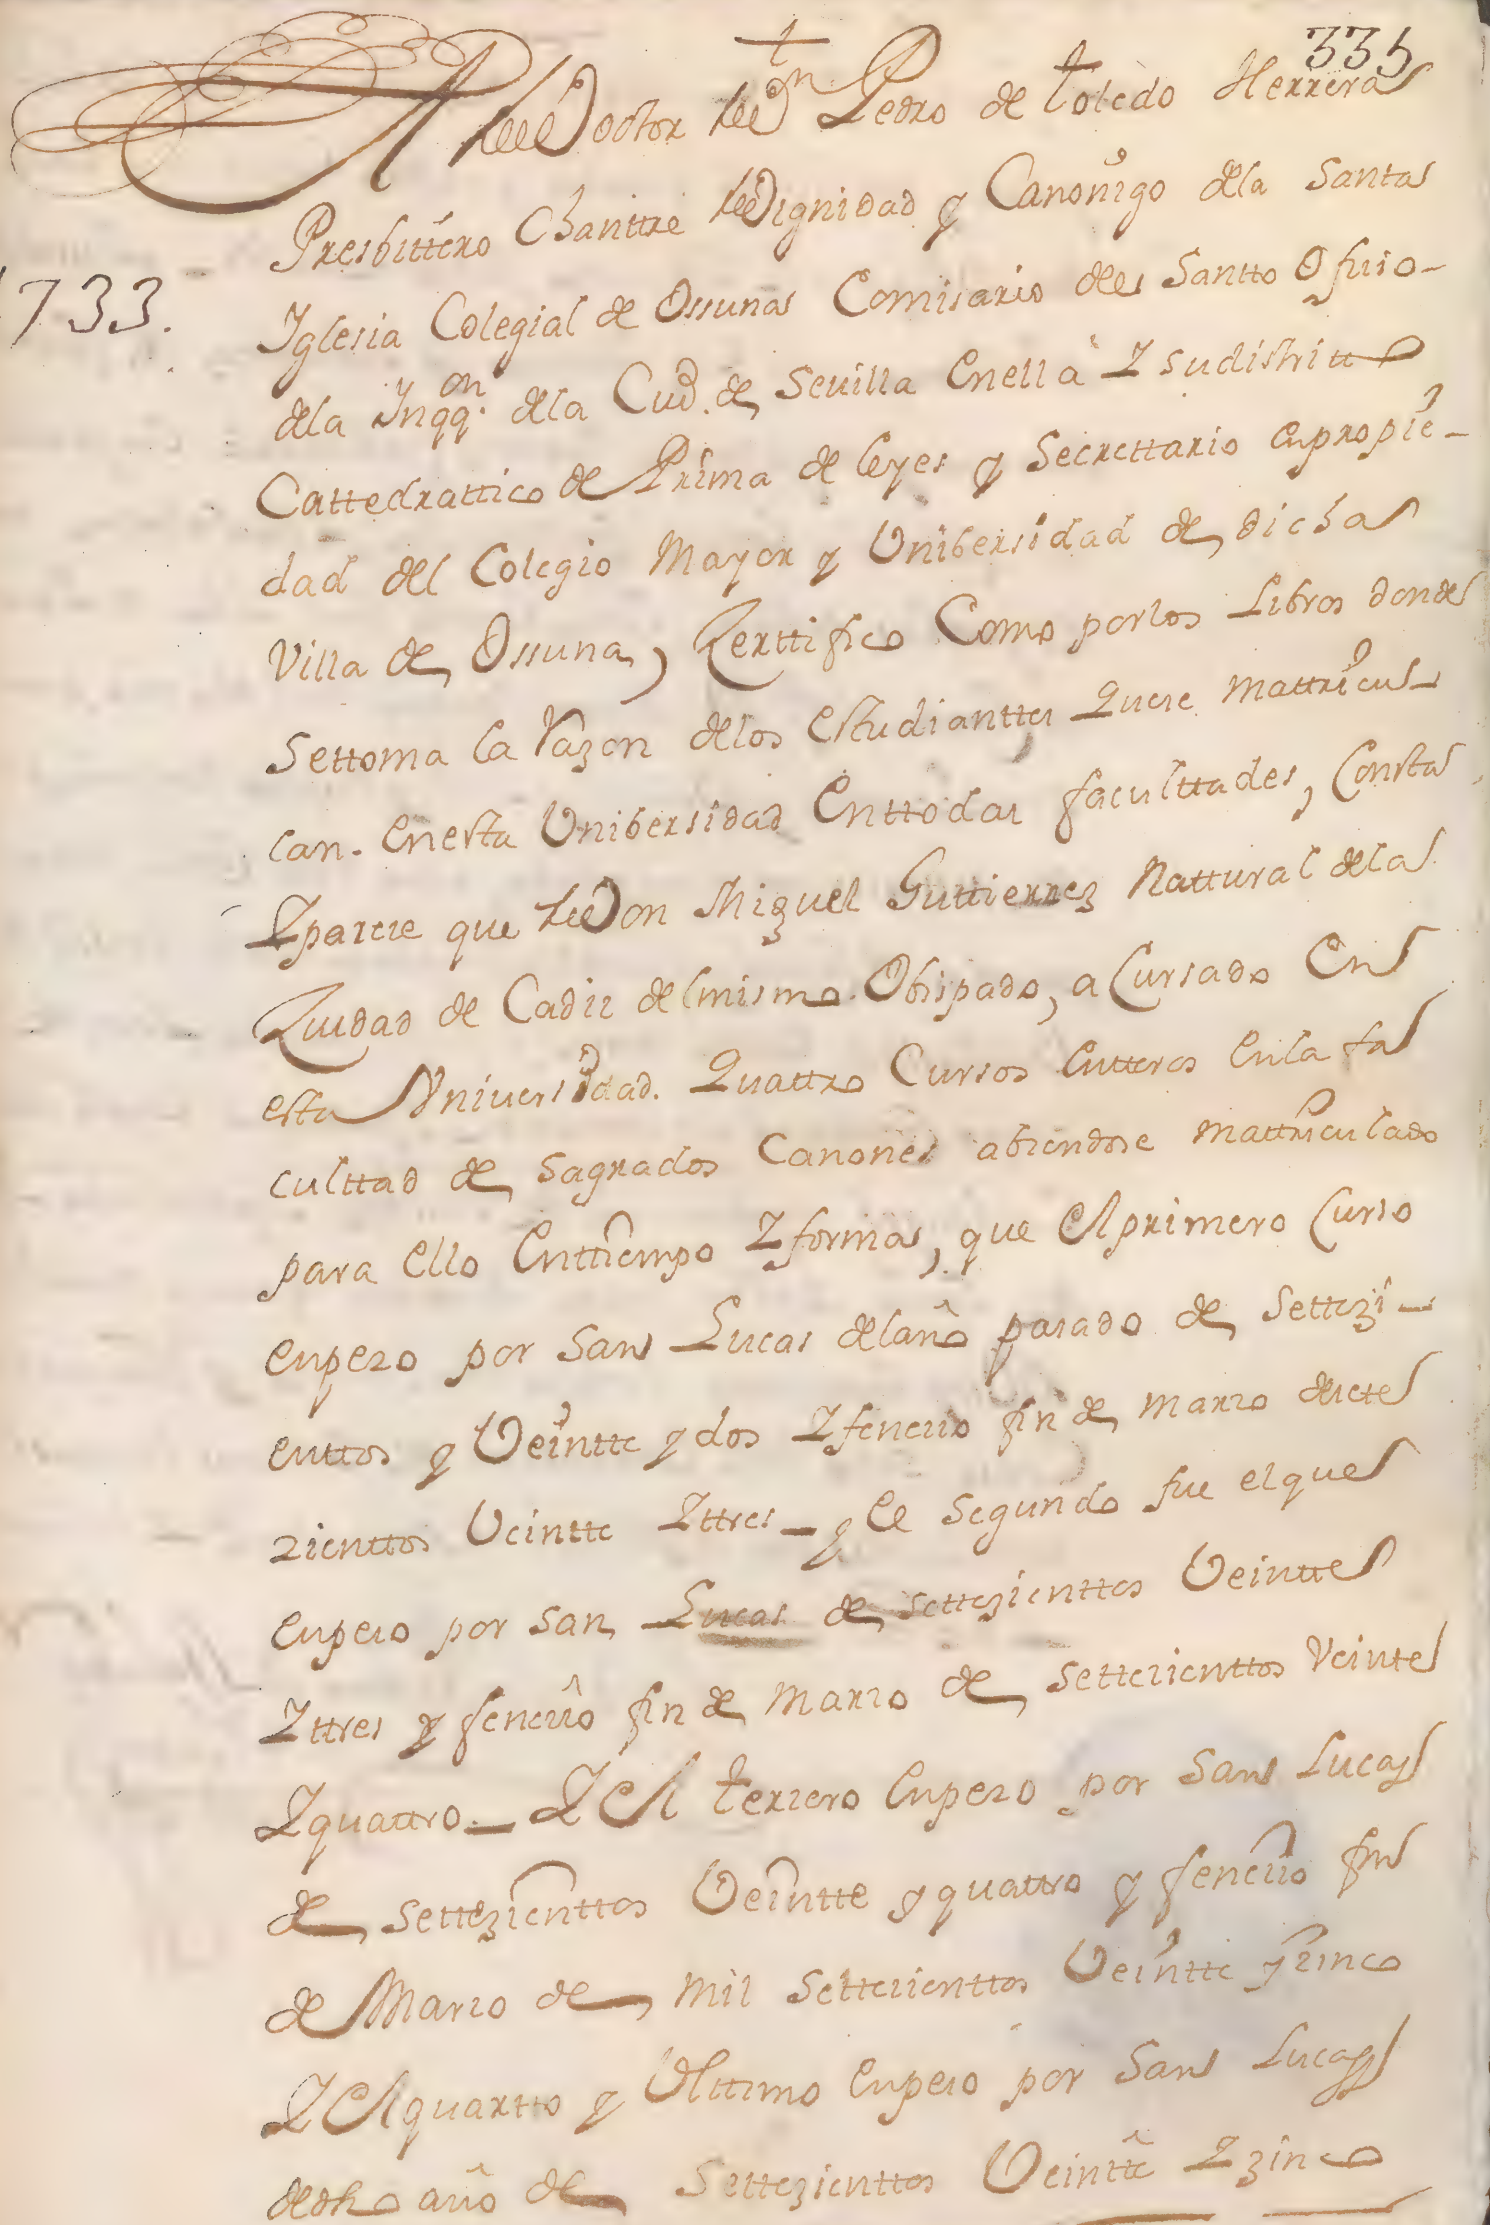 335
†
Doctor Dn Pedro de toledo Herrera
Presbittero Chanttre Dignidad y Canonigo dela Santa
1733.
Yglesia Colegial de Ossuna Comisario del Santto Ofiio-
dela Ynqqon. dela Ciud. de Seuilla Enella Y sudistritto
Cattedrattico de Prima de leyes y Secrettario enpropie-
dad del Colegio Mayor y Unibersidad de dicha
Villa de Ossuna, Zerttifico Como porlos Libros donde
settoma la Razon delos estudianttes Quese mattricu-
lan. Enesta Unibersidad Enttodas facullttades, Consta
Yparece que Don Miguel Guttierrez Nattural dela
Ziudad de Cadiz delmismo Obispado, a Cursado En
esta Universidad. Quattro Cursos Entteros Enla fa
culttad de Sagrados Canones abiendose mattriculado
para ello Enttiempo Yforma, que El primero Curso
enpezo por San Lucas delaño pasado de settezi-
enttos y Veintte y dos Yfenecio fin de Marzo desete
zienttos Veintte Yttres - y el segundo fue elque
enpezo por San Lucas de settezienttos Veintte
Yttres y fenecio fin de Marzo de settezienttos Veinte
Yquattro - Y El terzero Enpezo por San Lucas
de settezienttos Veintte y quattro y fenecio fin
de Marzo de mil settezienttos Veintte y zinco
Y El quartto y Ulttimo Enpezo por San Lucas
dedho año de settezienttos Veintte Y zinco